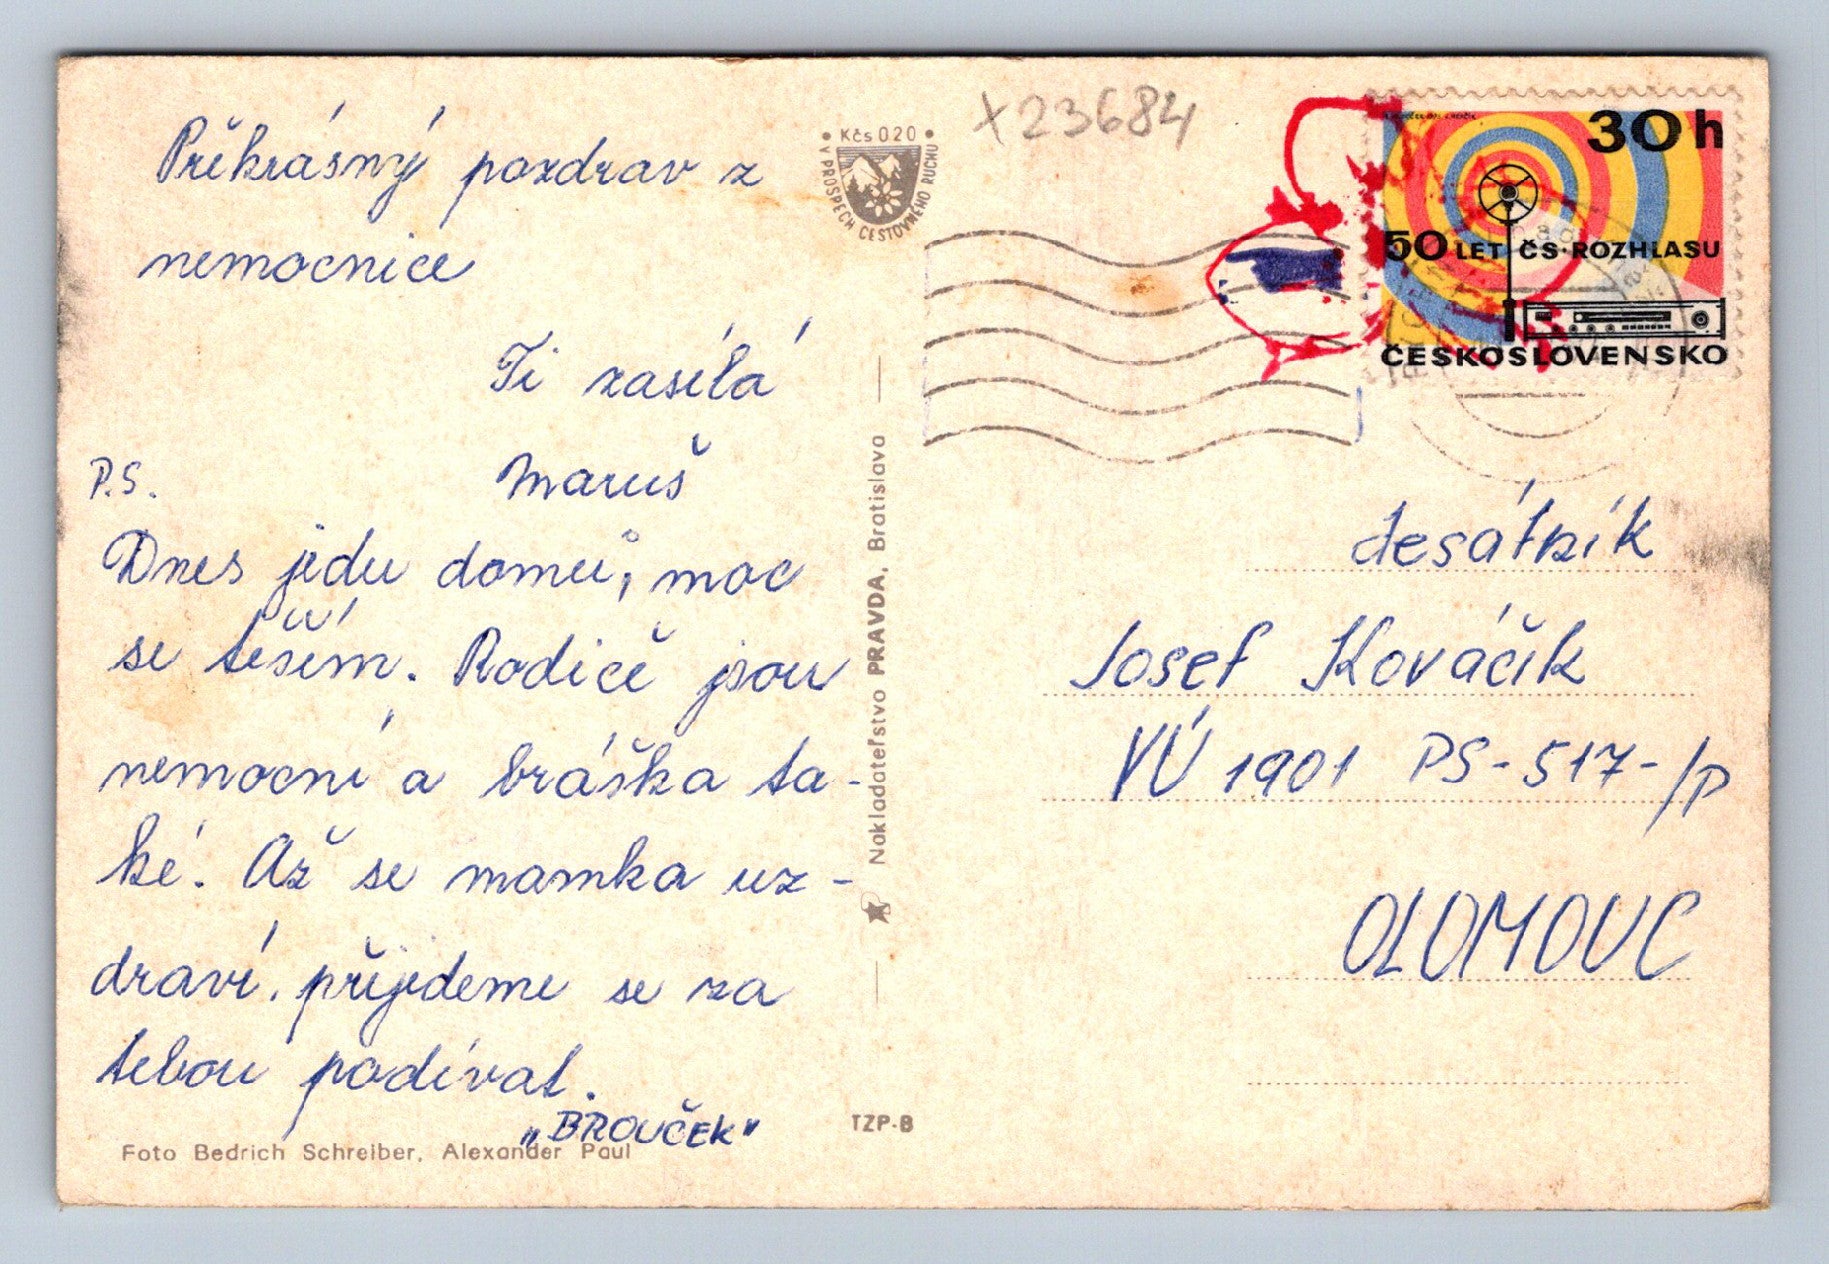 Překrásný pozdrav z
nemocnice
Ti zasílá
Maruš
P.S.
Dnes jedu domů, moc
se těším. Rodiče jsou
nemocní a bráška ta-
ké. Až se mamka uz-
draví, přijedeme se za
tebou podívat.
„BROUČEK"
Foto Bedrich Schreiber, Alexander Paul
• Kčs 020 •
V PROSPECH CESTOVNÉHO RUCHU
Nakladateľstvo PRAVDA, Bratislava
TZP-8
X 23684
30h
50 LET ČS·ROZHLASU
ČESKOSLOVENSKO
desátník
Josef Kováčik
VÚ 1901 PS-517-/P
OLOMOUC